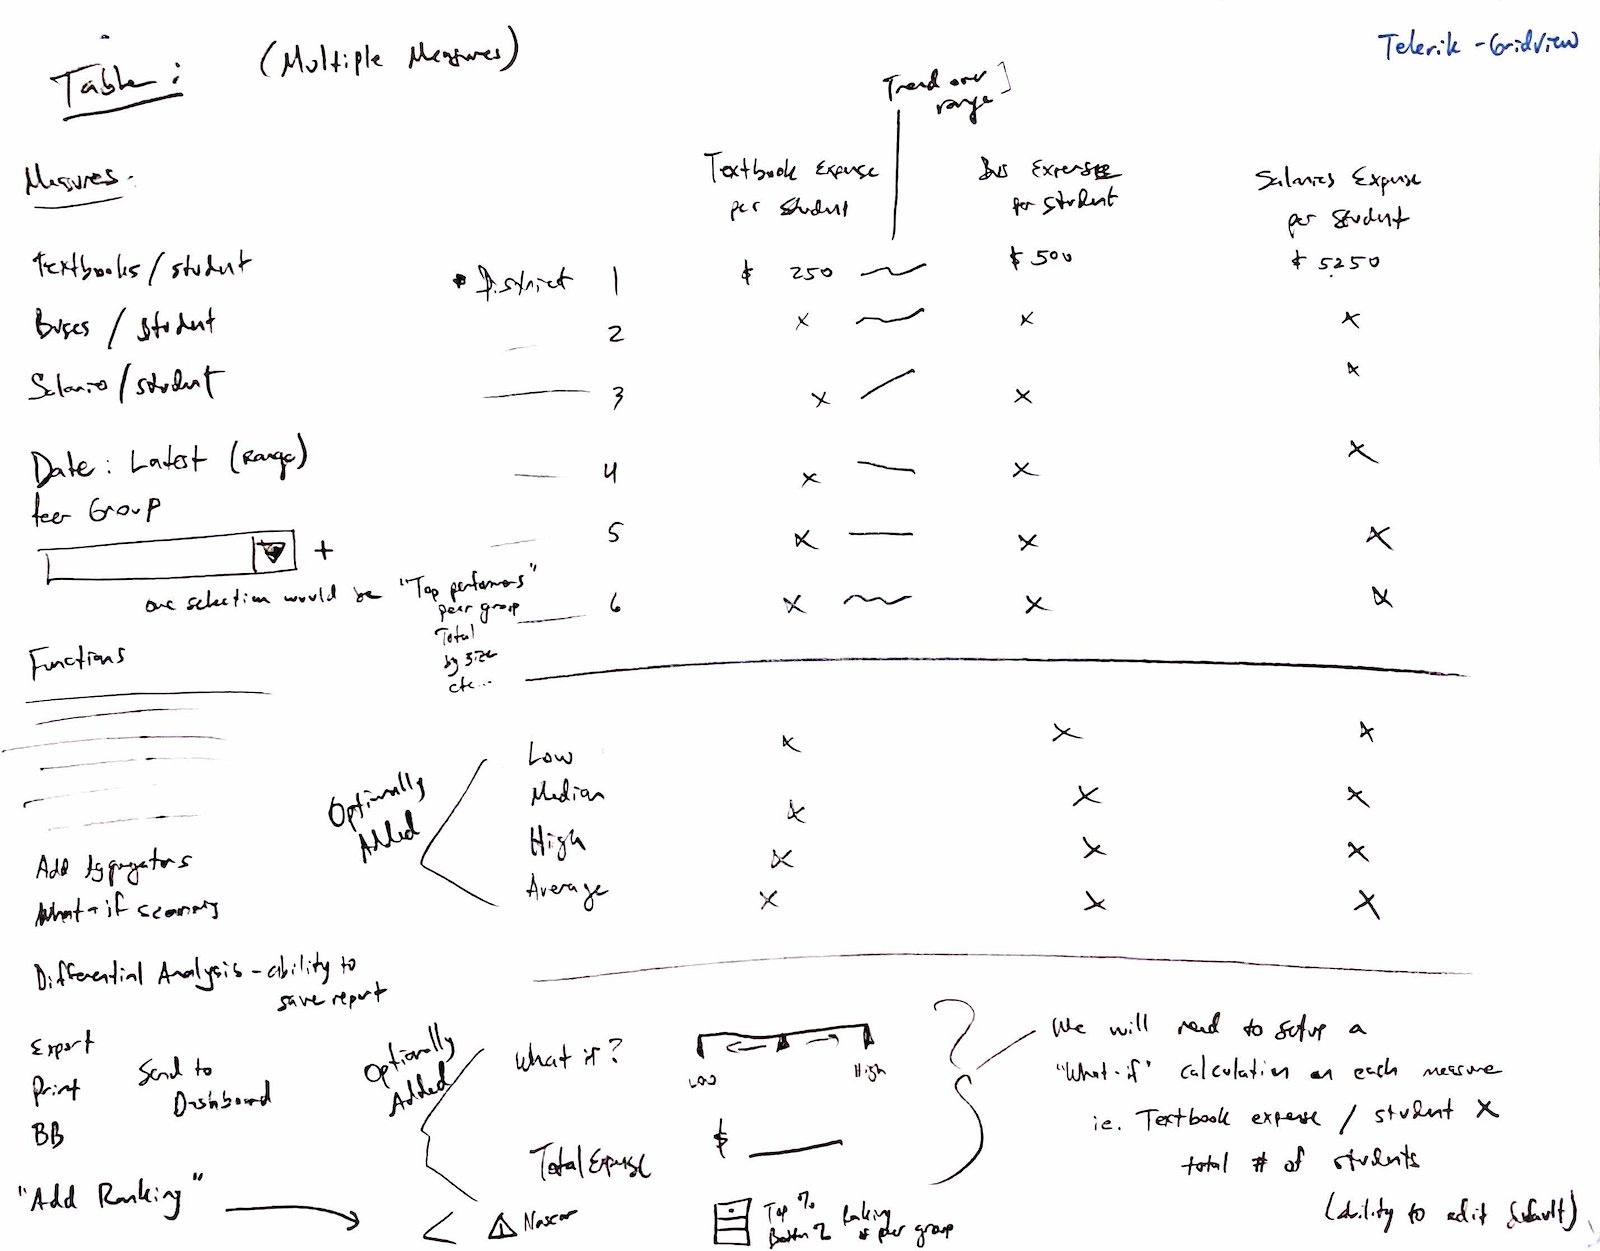 Table: (Multiple Measures)
Telerik - Gridview
Trend over
range
Measures.
Textbook Expense
per student
Bus Expense
per student
Salaries Expense
per student
Textbooks / student
Buses / student
Salaries / student
District 1 $ 250 $ 500 $ 5250
2 x x x
3 x x x
4 x x x
5 x x x
6 x x x
Date: Latest (Range)
Peer Group
+
one selection would be "Top performers"
peer group
Total
by size
etc...
Functions
Optionally
Added
Low x x x
Median x x x
High x x x
Average x x x
Add Aggregators
What-if scenarios
Differential Analysis - ability to
save report
Export
Print
BB
Send to
Dashboard
"Add Ranking"
Optionally
Added
What if?
Low High
Total Expense $
?
We will need to setup a
"What-if" calculation on each measure
ie. Textbook expense / student X
total # of students
(ability to edit default)
Nascar
Top %
Bottom %
Ranking
of peer group